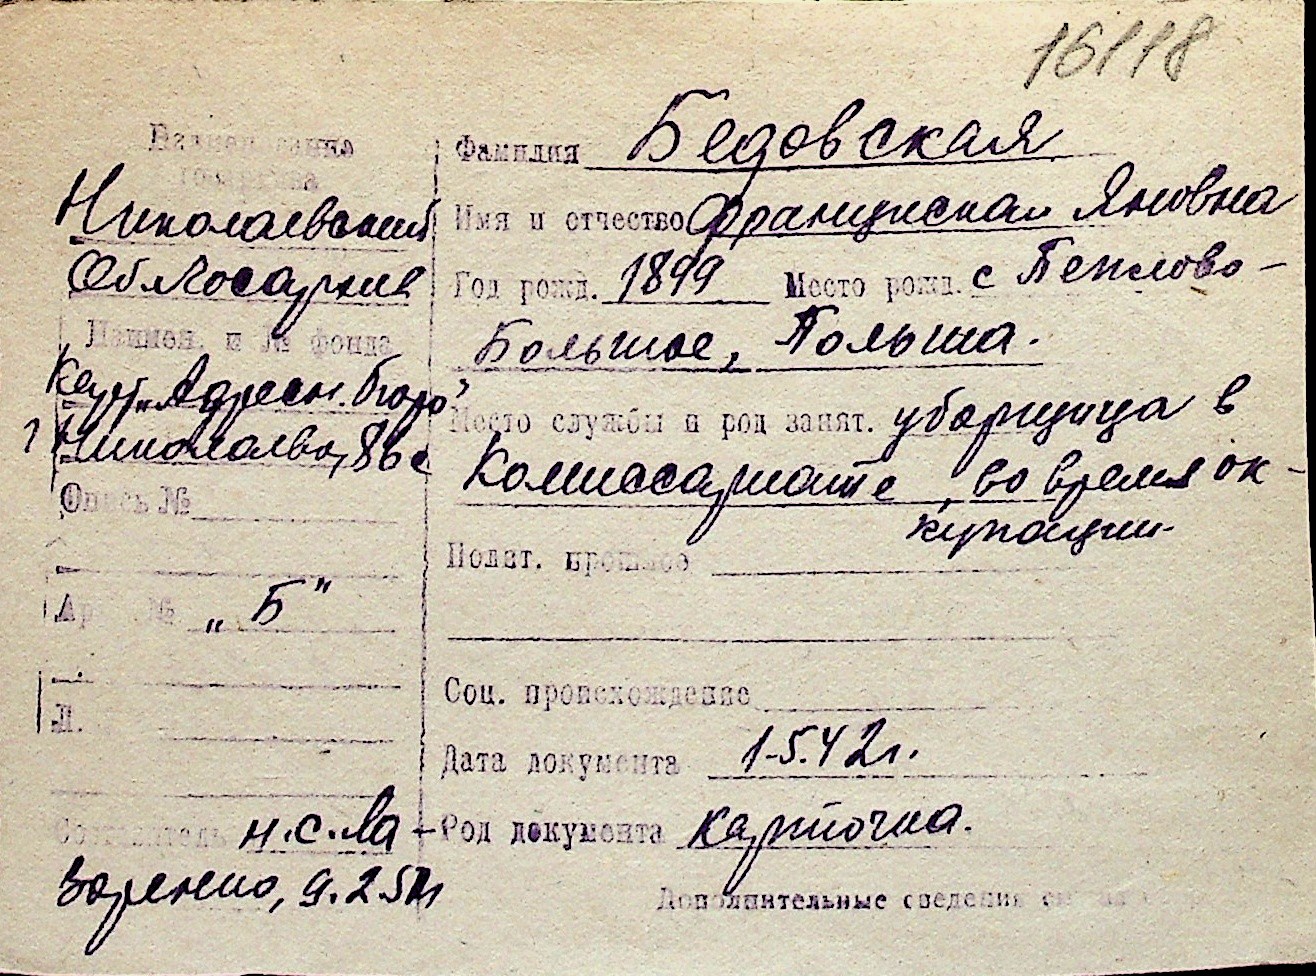 16118
Наименование
госархива
Николаевский
Облгосархив
Наимен. и № фонда
Карт. „Адресн. бюро"
г Николаева, 86 с
Опись №
Арх. № „Б"
Л.
Составитель Н.С. Ла-
заренко, 9.2.51
Фамилия Бедовская
Имя и отчество Француиская Яновна
Год рожд. 1899 Место рожд. с Пеклово-
Большое, Польша.
Место службы и род занят. уборщица в
Комиссариате, во время ок-
купации.
Полит. прошлое
Соц. происхождение
Дата документа 1.5.42 г.
Род документа карточка.
Дополнительные сведения см. на